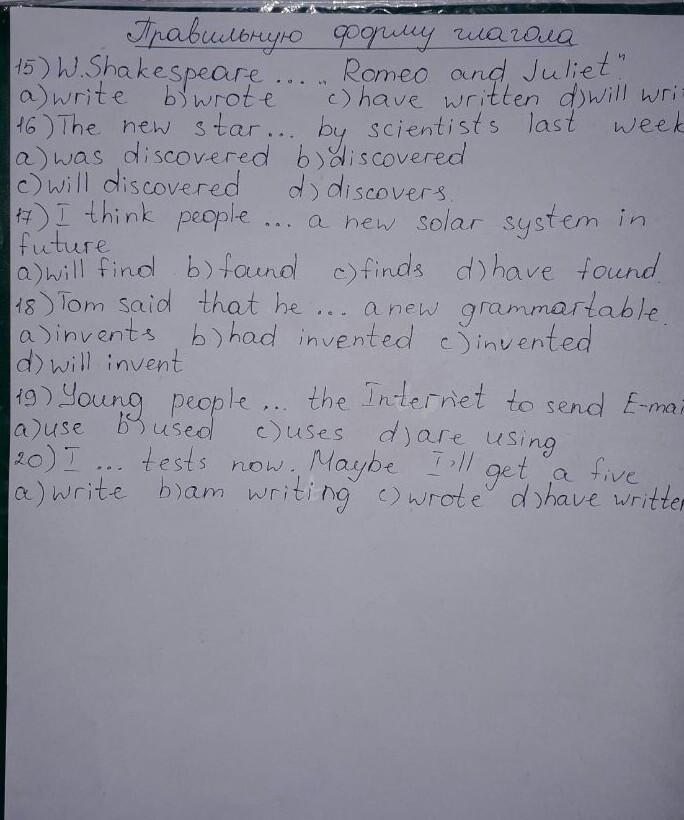 Правильную форму глагола
15) W.Shakespeare .... „ Romeo and Juliet"
a) write b) wrote c) have written d) will wri
16) The new star... by scientists last week
a) was discovered b) discovered
c) will discovered d) discovers.
17) I think people ... a new solar system in
future
a) will find b) found c) finds d) have found.
18) Tom said that he ... a new grammartable.
a) invents b) had invented c) invented
d) will invent
19) Young people ... the Internet to send E-mai
a) use b) used c) uses d) are using
20) I ... tests now. Maybe I'll get a five
a) write b) am writing c) wrote d) have written